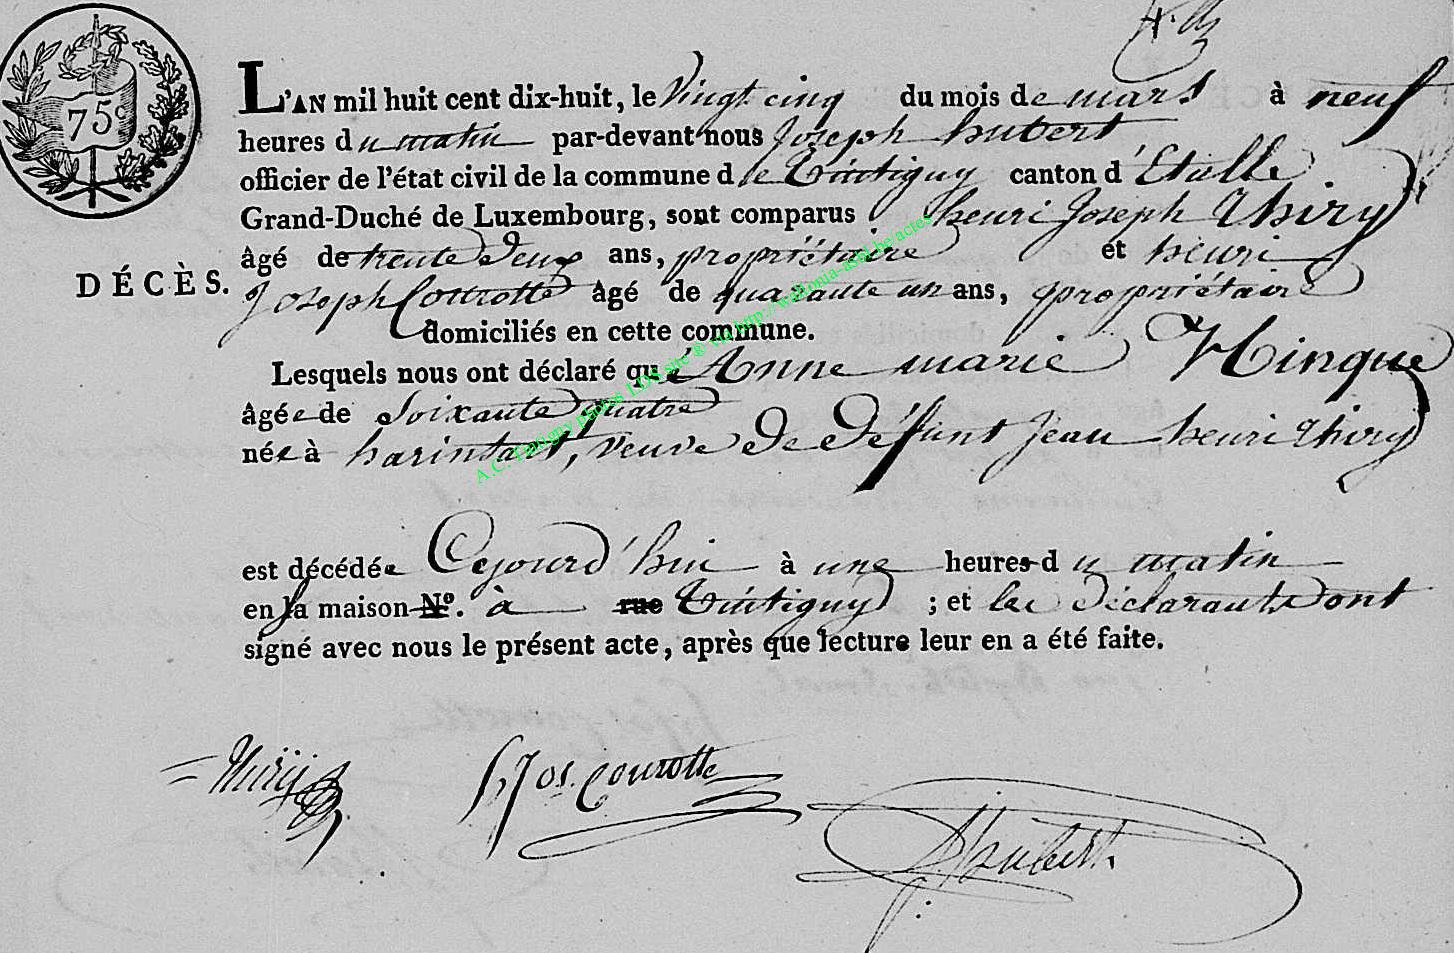 75c
L'AN mil huit cent dix-huit, le Vingt cinq du mois de mars à neuf
heures du matin par-devant nous Joseph hubert
officier de l'état civil de la commune de Tintigny canton d'Etalle
Grand-Duché de Luxembourg, sont comparus henri Joseph Thiry
âgé de trente deux ans, propriétaire et henri
DÉCÈS.
Joseph Courotte âgé de quarante un ans, propriétaire
domiciliés en cette commune.
Lesquels nous ont déclaré que Anne marie Hinque
âgée de Soixante quatre
née à harinsart, veuve De Défunt Jean henri Thiry
est décédée Cejourd'hui à une heures du matin
en sa maison No. à rue Tintigny ; et les Déclarants ont
signé avec nous le présent acte, après que lecture leur en a été faite.
Thiry
h Jos. Courotte
J hubert.
A.C. Tintigny photos LDS site ® via http://wallonia-asbl.be/actes